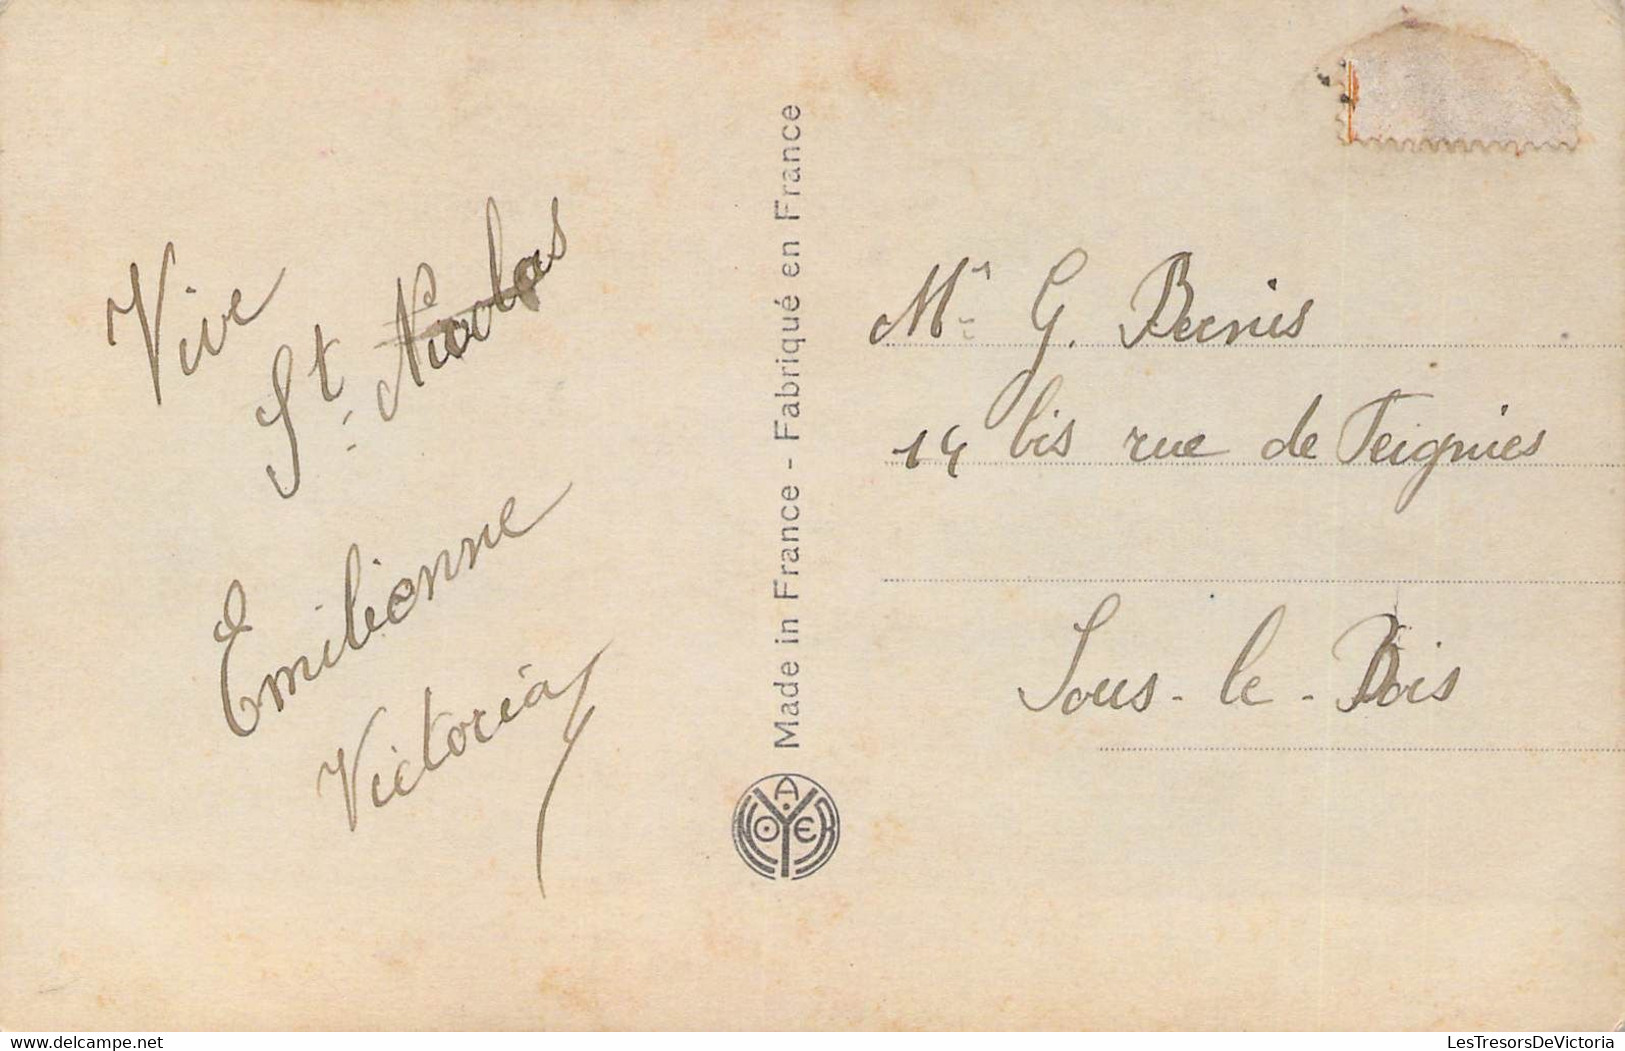 Vive
St. Nicolas
Emilienne
Victoria
Made in France - Fabriqué en France
A
NOYER
Mr G. Bernis
14 bis rue de Feignies
Sous-le-Bois
delcampe.net
LesTresorsDeVictoria